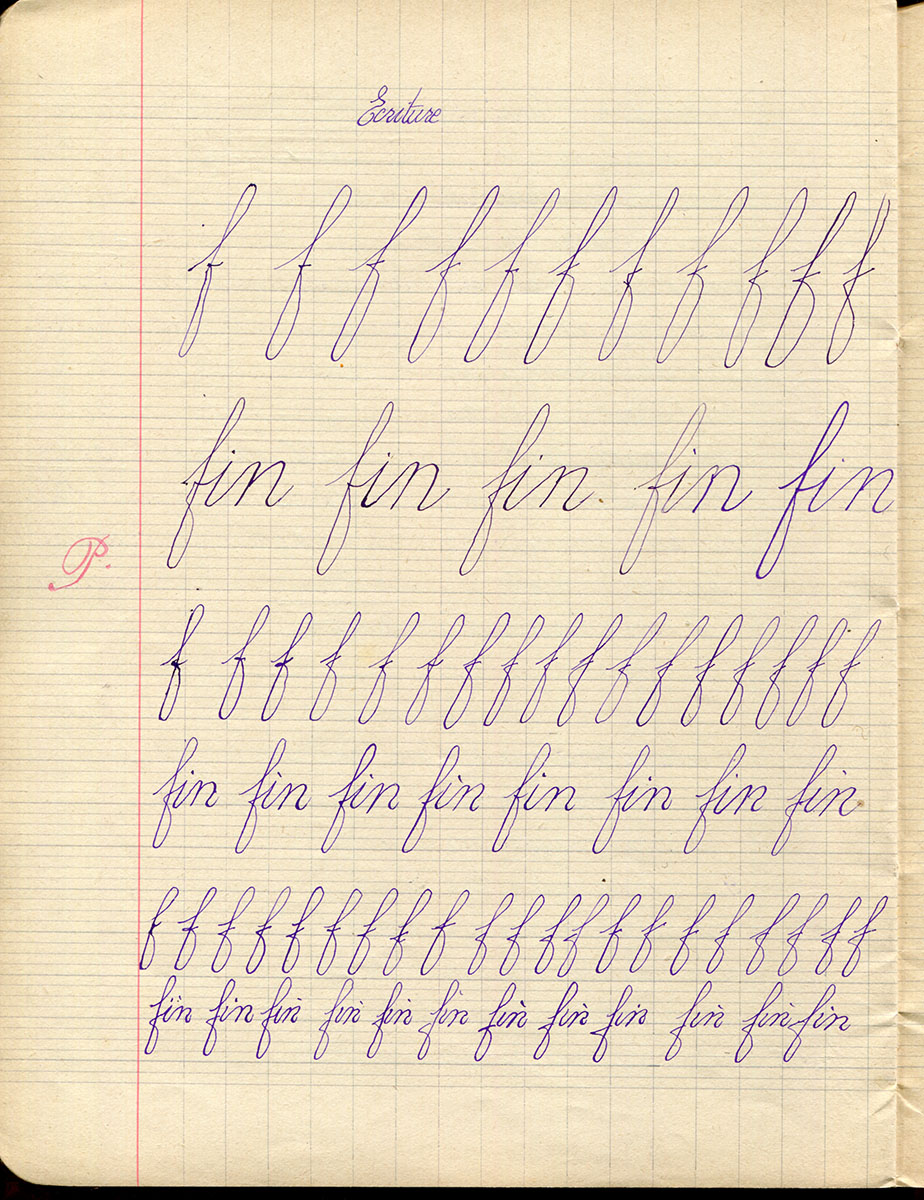 Ecriture
f f f f f f f f f f f
fin fin fin fin fin
P.
f f f f f f f f f f f f f f f f f
fin fin fin fin fin fin fin fin
f f f f f f f f f f f f f f f f f f f f f
fin fin fin fin fin fin fin fin fin fin fin fin